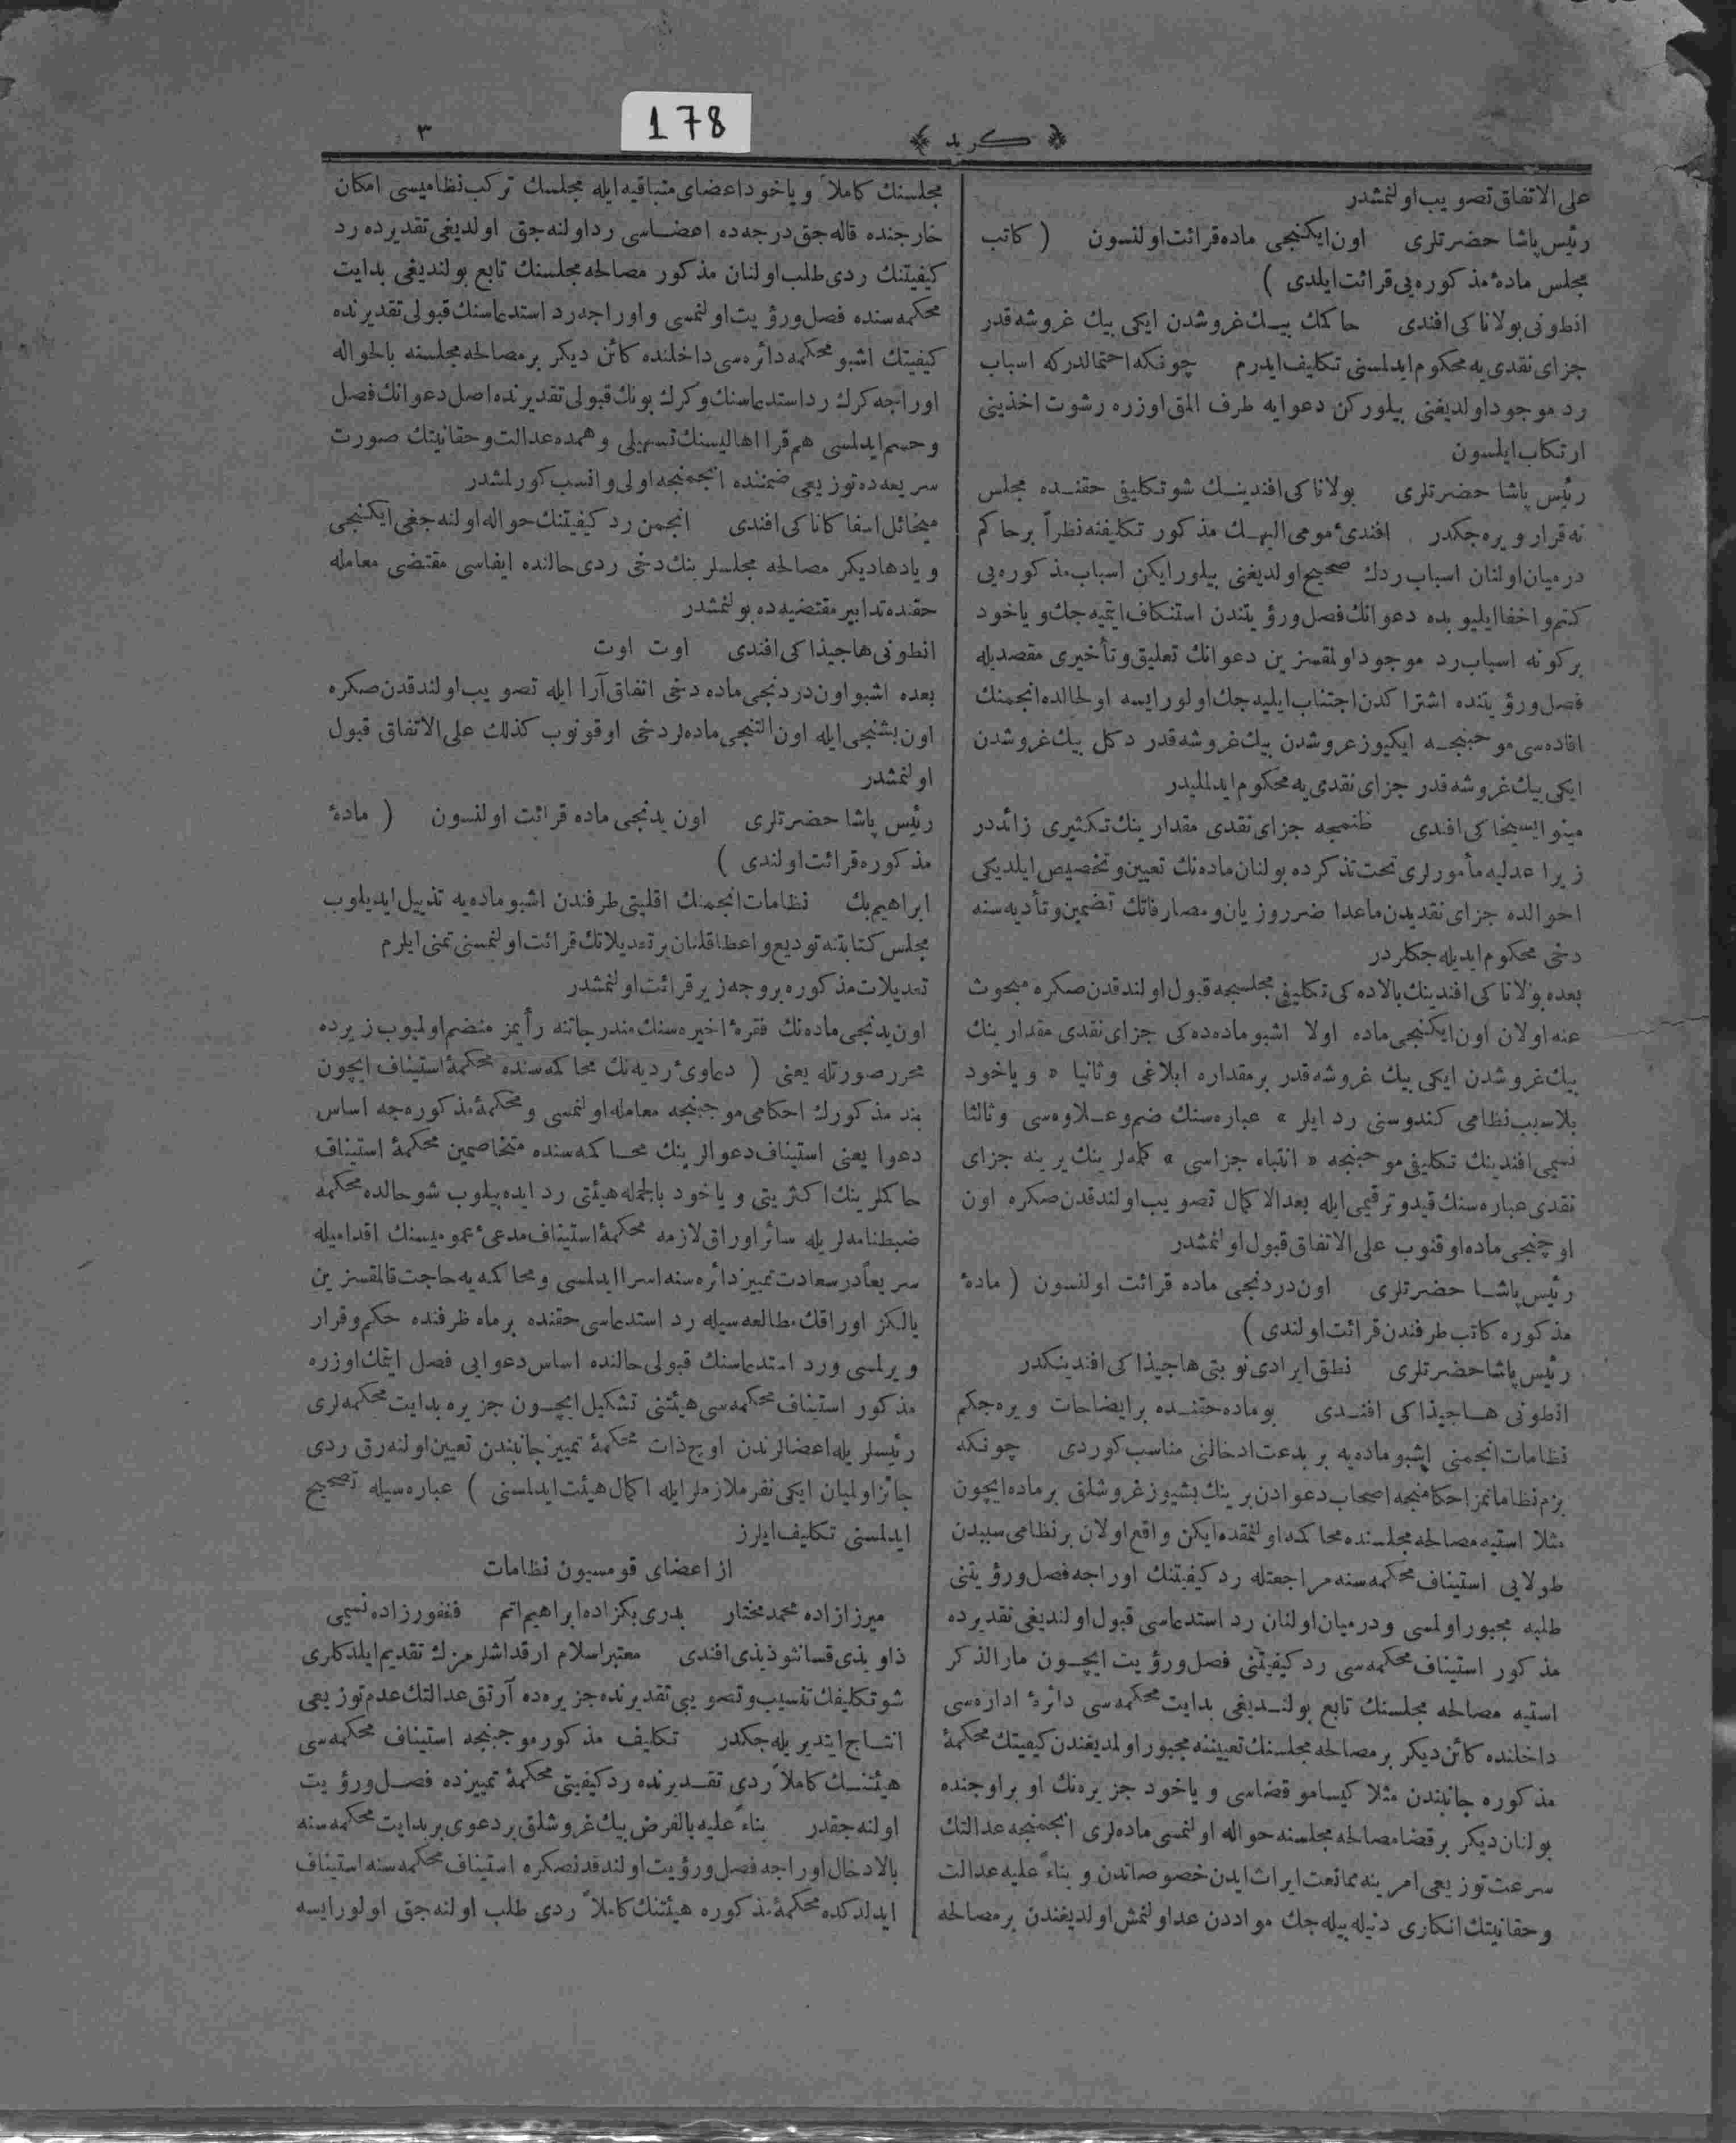 178
﴿ كريد ﴾
٣
على الاتفاق تصويب اولنمشدر
رئيس پاشا حضرتلرى اون ايكنجى ماده قرائت اولنسون ( كاتب
مجلس مادۀ مذكوره‌يى قرائت ايلدى )
انطونى بولاناكى افندى حاكمك بيك غروشدن ايكى بيك غروشه قدر
جزاى نقدى‌يه محكوم ايدلمسنى تكليف ايدرم چونكه احتمالدركه اسباب
رد موجود اولديغنى بيلوركن دعوايه طرف المق اوزره رشوت اخذينى
ارتكاب ايلسون
رئيس پاشا حضرتلرى بولاناكى افندينك شو تكليفى حقنده مجلس
نه قرار ويره‌جكدر افندئ مومى اليهك مذكور تكليفنه نظراً بر حاكم
درميان اولنان اسباب ردك صحيح اولديغنى بيلور ايكن اسباب مذكوره‌يى
كتم و اخفا ايليوبده دعوانك فصل و رؤيتندن استنكاف ايتميه‌جك و ياخود
بركونه اسباب رد موجود اولمقسزين دعوانك تعليق و تأخيرى مقصديله
فصل و رؤيتنده اشتراكدن اجتناب ايليه‌جك اولور ايسه اولحالده انجمنك
افاده‌سى موجبنجه ايكيوز غروشدن بيك غروشه قدر دكل بيك غروشدن
ايكى بيك غروشه قدر جزاى نقدى‌يه محكوم ايدلمليدر
مينو ايسيخاكى افندى ظنمجه جزاى نقدى مقدارينك تكثيرى زائددر
زيرا عدليه مأمورلرى تحت تذكرده بولنان ماده‌نك تعيين و تخصيص ايلديكى
احوالده جزاى نقديدن ماعدا ضرر و زيان و مصارفاتك تضمين و تأديه‌سنه
دخى محكوم ايديله‌جكلردر
بعده بولاناكى افندينك بالاده‌كى تكليفى مجلسجه قبول اولندقدن صكره مبحوث
عنه اولان اون ايكنجى ماده اولا اشبو ماده‌ده‌كى جزاى نقدى مقدارينك
بيك غروشدن ايكى بيك غروشه قدر بر مقداره ابلاغى و ثانيا « و ياخود
بلاسبب نظامى كندوسنى رد ايلر » عباره‌سنك ضم و علاوه‌سى و ثالثا
نسيمى افندينك تكليفى موجبنجه « انتباه جزاسى » كلمه‌لرينك يرينه جزاى
نقدى عباره‌سنك قيد و ترقيمى ايله بعد الاكمال تصويب اولندقدن صكره اون
اوچنجى ماده اوقنوب على الاتفاق قبول اولنمشدر
رئيس پاشا حضرتلرى اون دردنجى ماده قرائت اولنسون ( مادۀ
مذكوره كاتب طرفندن قرائت اولندى )
رئيس پاشا حضرتلرى نطق ايرادى نوبتى هاجيذاكى افندينكدر
انطونى هاجيذاكى افندى بو ماده حقنده بر ايضاحات ويره‌جكم
نظامات انجمنى اشبو ماده‌يه بر بدعت ادخالنى مناسب كوردى چونكه
بزم نظاماتمز احكامنجه اصحاب دعوادن برينك بشيوز غروشلق بر ماده ايچون
مثلا استيه مصالحه مجلسنده محاكمه اولنمقده ايكن واقع اولان بر نظامى سببدن
طولايى استيناف محكمه‌سنه مراجعتله رد كيفيتنك اوراجه فصل و رؤيتنى
طلبه مجبور اولمسى و درميان اولنان رد استدعاسى قبول اولنديغى تقديرده
مذكور استيناف محكمه‌سى رد كيفيتنى فصل و رؤيت ايچون مار الذكر
استيه مصالحه مجلسنك تابع بولنديغى بدايت محكمه‌سى دائرۀ اداره‌سى
داخلنده كائن ديكر بر مصالحه مجلسنك تعييننه مجبور اولمديغندن كيفيتك محكمۀ
مذكوره جانبندن مثلا كيسامو قضاسى و ياخود جزيره‌نك او بر اوجنده
بولنان ديكر بر قضا مصالحه مجلسنه حواله اولنمسى ماده‌لرى انجمنجه عدالتك
سرعت توزيعى امرينه ممانعت ايراث ايدن خصوصاتدن و بناءً عليه عدالت
و حقانيتك انكارى دنيله بيله‌جك مواددن عد اولنمش اولديغندن بر مصالحه
مجلسنك كاملاً و ياخود اعضاى متباقيه ايله مجلسك تركب نظاميسى امكان
خارجنده قاله‌جق درجه‌ده اعضاسى رد اولنه‌جق اولديغى تقديرده رد
كيفيتنك ردى طلب اولنان مذكور مصالحه مجلسنك تابع بولنديغى بدايت
محكمه‌سنده فصل و رؤيت اولنمسى و اوراجه رد استدعاسنك قبولى تقديرنده
كيفيتك اشبو محكمه دائره‌سى داخلنده كائن ديكر بر مصالحه مجلسنه بالحواله
اوراجه كرك رد استدعاسنك و كرك بونك قبولى تقديرنده اصل دعوانك فصل
و حسم ايدلمسى هم قرا اهاليسنك تسهيلى و همده عدالت و حقانيتك صورت
سريعه‌ده توزيعى ضمننده انجمنجه اولى و انسب كورلمشدر
ميخائل اسفاكاناكى افندى انجمن رد كيفيتنك حواله اولنه‌جغى ايكنجى
و يا دها ديكر مصالحه مجلسلرينك دخى ردى حالنده ايفاسى مقتضى معامله
حقنده تدابير مقتضيه‌ده بولنمشدر
انطونى هاجيذاكى افندى اوت اوت
بعده اشبو اون دردنجى ماده دخى اتفاق آرا ايله تصويب اولندقدن صكره
اون بشنجى ايله اون التنجى ماده‌لر دخى اوقونوب كذلك على الاتفاق قبول
اولنمشدر
رئيس پاشا حضرتلرى اون يدنجى ماده قرائت اولنسون ( مادۀ
مذكوره قرائت اولندى )
ابراهيم بك نظامات انجمنك اقليتى طرفندن اشبو ماده‌يه تذييل ايديلوب
مجلس كتابتنه توديع و اعطا قلنان بر تعديلاتك قرائت اولنمسنى تمنى ايلرم
تعديلات مذكوره بروجه زير قرائت اولنمشدر
اون يدنجى ماده‌نك فقرۀ اخيره‌سنك مندرجاتنه رأيمز منضم اولميوب زيرده
محرر صورتله يعنى ( دعاوئ رديه‌نك محاكمه‌سنده محكمۀ استيناف ايچون
بند مذكورك احكامى موجبنجه معامله اولنمسى و محكمۀ مذكوره‌جه اساس
دعوا يعنى استيناف دعوالرينك محاكمه‌سنده متخاصمين محكمۀ استيناف
حاكملرينك اكثريتى و ياخود بالجمله هيئتى رد ايده بيلوب شو حالده محكمه
ضبطنامه‌لريله سائر اوراق لازمه محكمۀ استيناف مدعئ عموميسنك اقداميله
سريعاً درسعادت تمييز دائره‌سنه اسرا ايدلمسى و محاكمه‌يه حاجت قالمقسزين
يالكز اوراقك مطالعه‌سيله رد استدعاسى حقنده بر ماه ظرفنده حكم و قرار
ويرلمسى و رد استدعاسنك قبولى حالنده اساس دعوايى فصل ايتمك اوزره
مذكور استيناف محكمه‌سى هيئتنى تشكيل ايچون جزيره بدايت محكمه‌لرى
رئيسلريله اعضالرندن اوچ ذات محكمۀ تمييز جانبندن تعيين اولنه‌رق ردى
جائز اولميان ايكى نفر ملازملر ايله اكمال هيئت ايدلمسنى ) عباره‌سيله تصحيح
ايدلمسنى تكليف ايلرز
از اعضاى قومسيون نظامات
ميرزازاده محمد مختار بدرى بكزاده ابراهيم ادهم فغفورزاده نسيمى
ذاويذى قسانثوذيذى افندى معتبر اسلام ارقداشلرمزك تقديم ايلدكلرى
شو تكليفك تنسيب و تصويبى تقديرنده جزيره‌ده آرتق عدالتك عدم توزيعى
انتاج ايتديريله‌جكدر تكليف مذكور موجبنجه استيناف محكمه‌سى
هيئتنك كاملاً ردى تقديرنده رد كيفيتى محكمۀ تمييزده فصل و رؤيت
اولنه‌جقدر بناءً عليه بالفرض بيك غروشلق بر دعوى بر بدايت محكمه‌سنه
بالادخال اوراجه فصل و رؤيت اولندقدنصكره استيناف محكمه‌سنه استيناف
ايدلدكده محكمۀ مذكوره هيئتنك كاملاً ردى طلب اولنه‌جق اولور ايسه